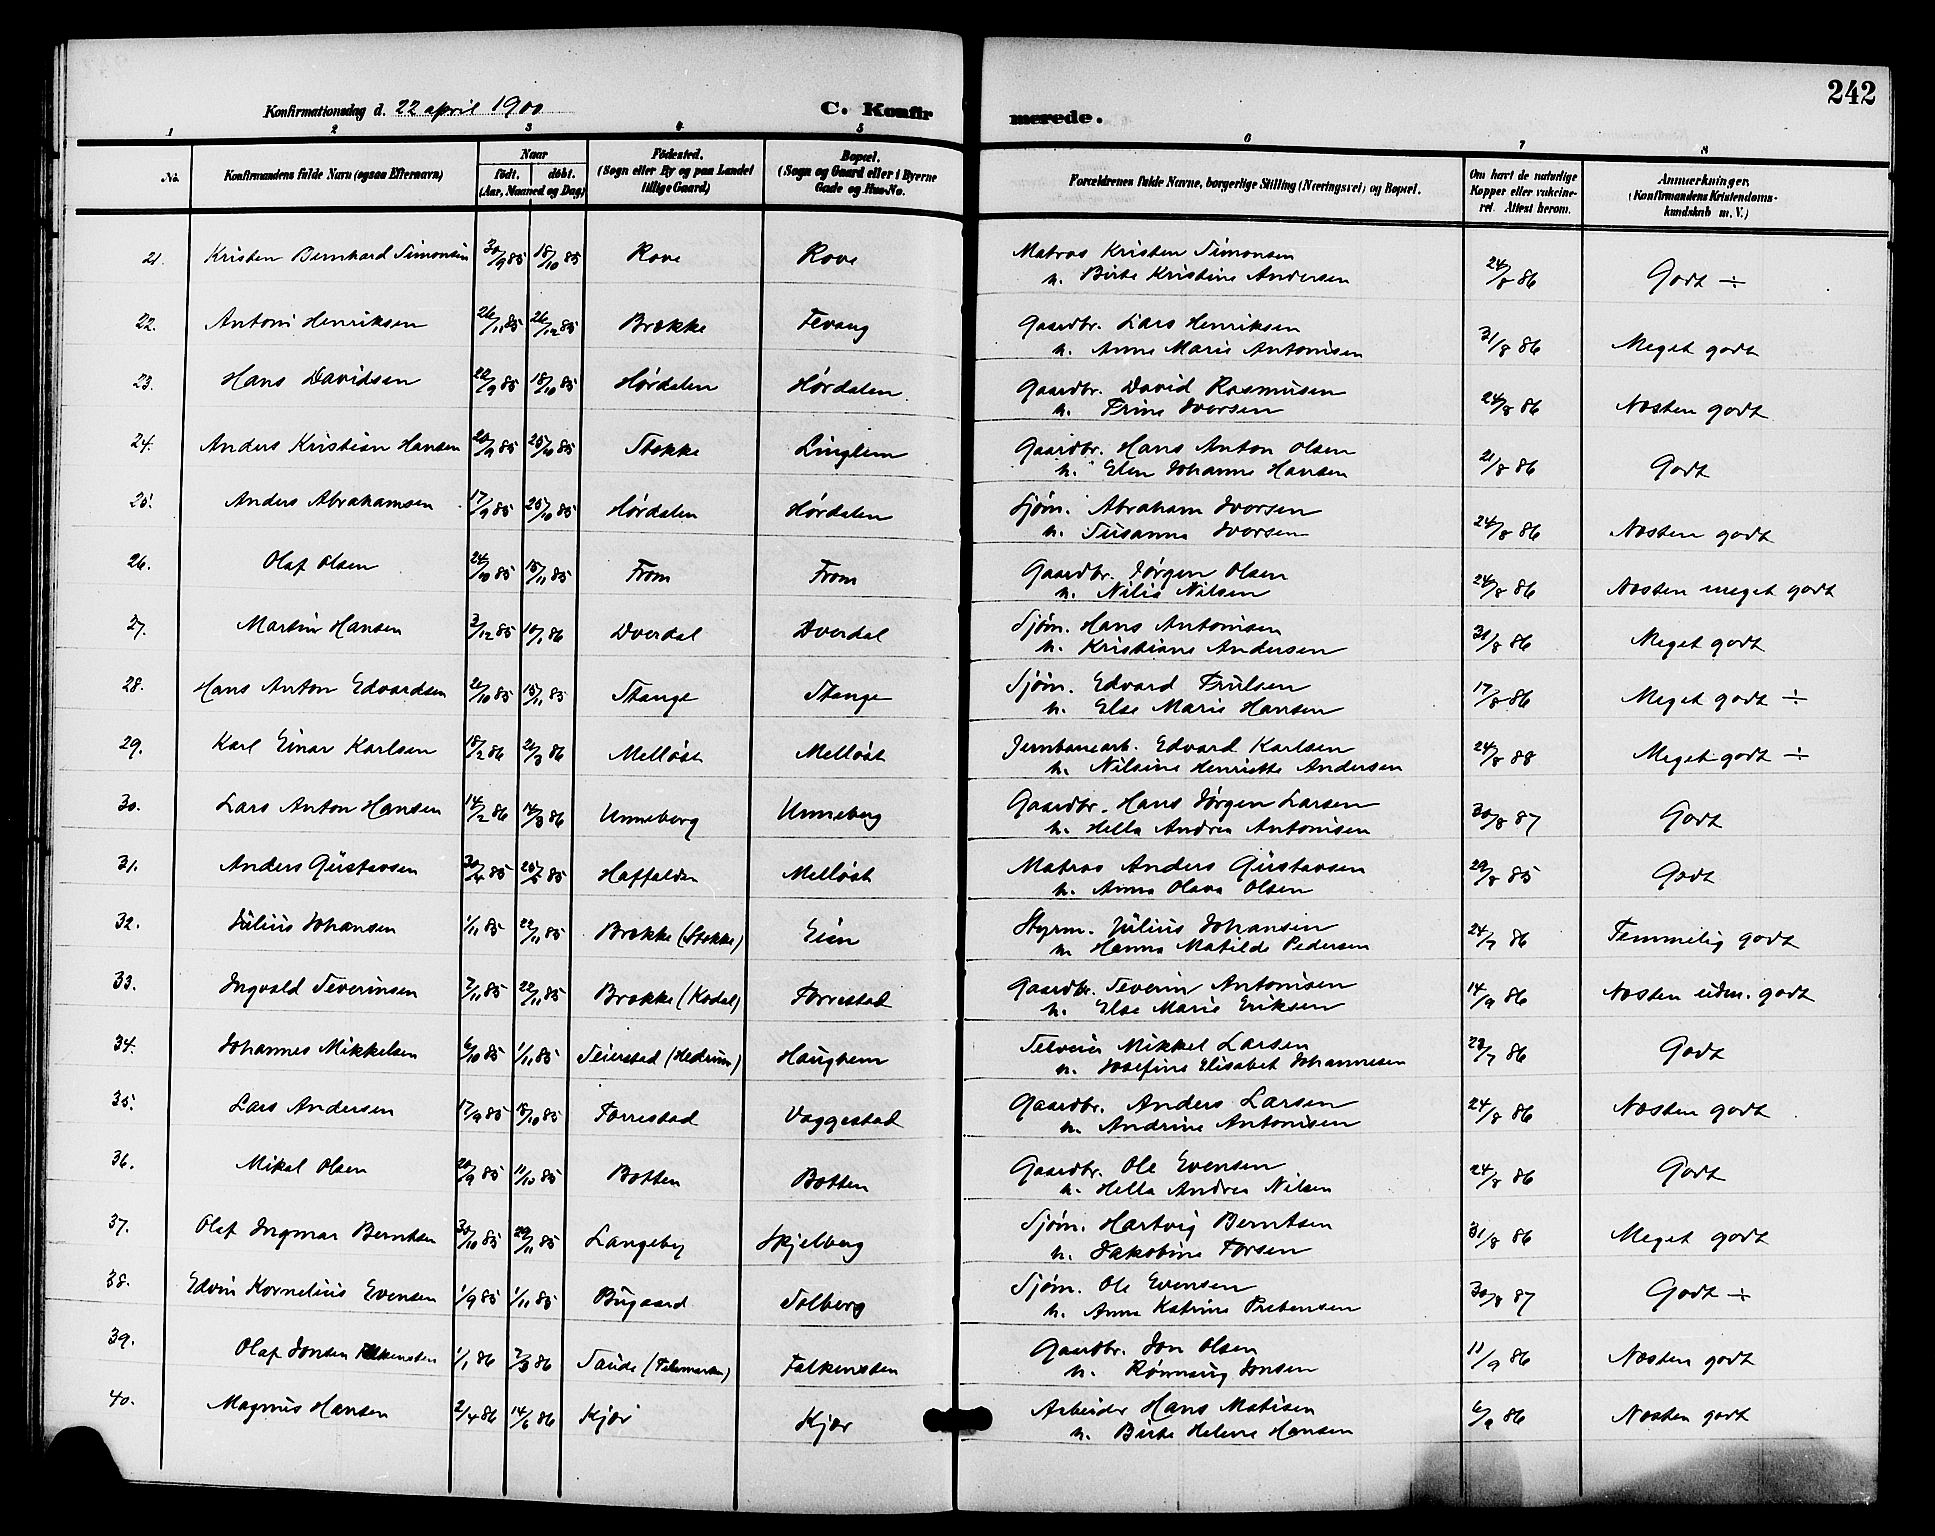 242
Konfirmationsdag d. 22 april 1900 C. Konfirmerede.
1 2 3 4 5 6 7 8
No. Konfirmandens fulde Navn (ogsaa Efternavn) Naar født. døbt. (Aar, Maaned og Dag) Fødested. (Sogn eller By og paa Landet tillige Gaard) Bopæl. (Sogn og Gaard eller i Byerne Gade og Hus-No. Forældrenes fulde Navne, borgerlige Stilling (Næringsvei) og Bopæl. Om havt de naturlige Kopper eller vakcineret. Attest herom. Anmærkninger. (Konfirmandens Kristendomskundskab m. V.)
21. Kristen Bernhard Simonsen 30/9 85 18/10 85 Rove Rove Matros Kristen Simonsen 24/8 86 Godt ÷
u. Birte Kristine Andersen
22. Anton Henriksen 26/11 85 26/12 85 Brække Fevang Gaardbr. Lars Henriksen 31/8 86 Meget godt
u. Anne Marie Antonisen
23. Hans Davidsen 22/9 85 18/10 85 Hørdalen Hørdalen Gaardbr. David Rasmusen 24/8 86 Næsten godt
u. Trine Iversen
24. Anders Kristian Hansen /9 85 25/10 85 Stokke Linglem Gaardbr. Hans Anton Olsen 21/8 86 Godt
u. Elen Johanne Hansen
25. Anders Abrahamsen 17/9 85 25/10 85 Hørdalen Hørdalen Sjøm. Abraham Iversen 24/8 86 Næsten godt
u. Susanne Iversen
26. Olaf Olsen 24/10 85 15/11 85 From From Gaardbr. Jørgen Olsen 24/8 86 Næsten meget godt
u. Nilia Nilsen
27. Martin Hansen 3/12 85 /1 86 Dverdal Dverdal Sjøm. Hans Antonisen 31/8 86 Meget godt
u. Kristiane Andersen
28. Hans Anton Edvardsen /10 85 15/11 85 Stange Stange Sjøm. Edvard Trulsen 17/8 86 Meget godt ÷
u. Else Marie Hansen
29. Karl Einar Karlsen 18/2 86 21/3 86 Melløst Melløst Jernbanearb. Edvard Karlsen 24/8 88 Meget godt ÷
u. Nilsine Henriette Andersen
30. Lars Anton Hansen 14/2 86 14/3 86 Unneberg Unneberg Gaardbr. Hans Jørgen Larsen 30/8 87 Godt
u. Hella Andrea Antonisen
31. Anders Gustavsen 30/4 85 25/5 85 Haffalden Melløst Matros Anders Gustavsen 29/8 85 Godt
u. Anna Olava Olsen
32. Julius Johansen 1/11 85 22/11 85 Brække (Stokke) Eian Styrm. Julius Johansen 24/7 86 Temmelig godt
u. Hanna Matilde Pedersen
33. Ingvald Severinsen 7/11 85 22/11 85 Brække (Kodal) Torrestad Gaardbr. Severin Antonisen 14/9 86 Næsten udm. godt
u. Else Marie Eriksen
34. Johannes Mikkelsen 6/10 85 1/11 85 Seierstad (Hedrum) Haughem Selveier Mikkel Larsen 28/7 86 Godt
u. Josefine Elisabet Johannesen
35. Lars Andersen 17/9 85 18/10 85 Torrestad Vaggestad Gaardbr. Anders Larsen 24/8 86 Næsten godt
u. Andrine Antonisen
36. Mikal Olsen 20/9 85 11/10 85 Botten Botten Gaardbr. Ole Evensen 24/8 86 Godt
u. Hella Andrea Nilsen
37. Olaf Ingmar Berntsen 30/10 85 29/11 85 Langeby Skjelberg Sjøm. Hartvig Berntsen 31/8 86 Meget godt
u. Jakobine Torsen
38. Edvin Kornelius Evensen 1/9 85 1/11 85 Bugaard Solberg Sjøm. Ole Evensen 30/8 87 Godt ÷
u. Anne Katrine Prebensen
39. Olaf Jonsen Falkensten 1/1 86 7/3 86 Saude (Telemarken) Falkensten Gaardbr. Jon Olsen 11/9 86 Næsten godt
u. Rønnaug Jonsen
40. Magnus Hansen 2/4 86 14/6 86 Kjær Kjær Arbeider Hans Matisen 6/9 86 Næsten godt
u. Birte Helene Hansen